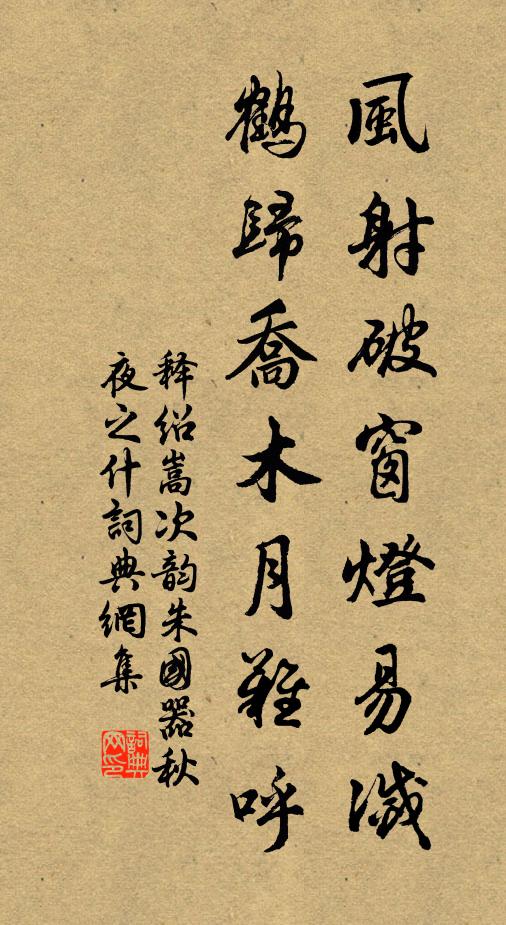 風射破窗燈易滅
鶴歸喬木月難呼
釋紹嵩次韵朱國器秋
夜之什詞典網集
詞典
网印